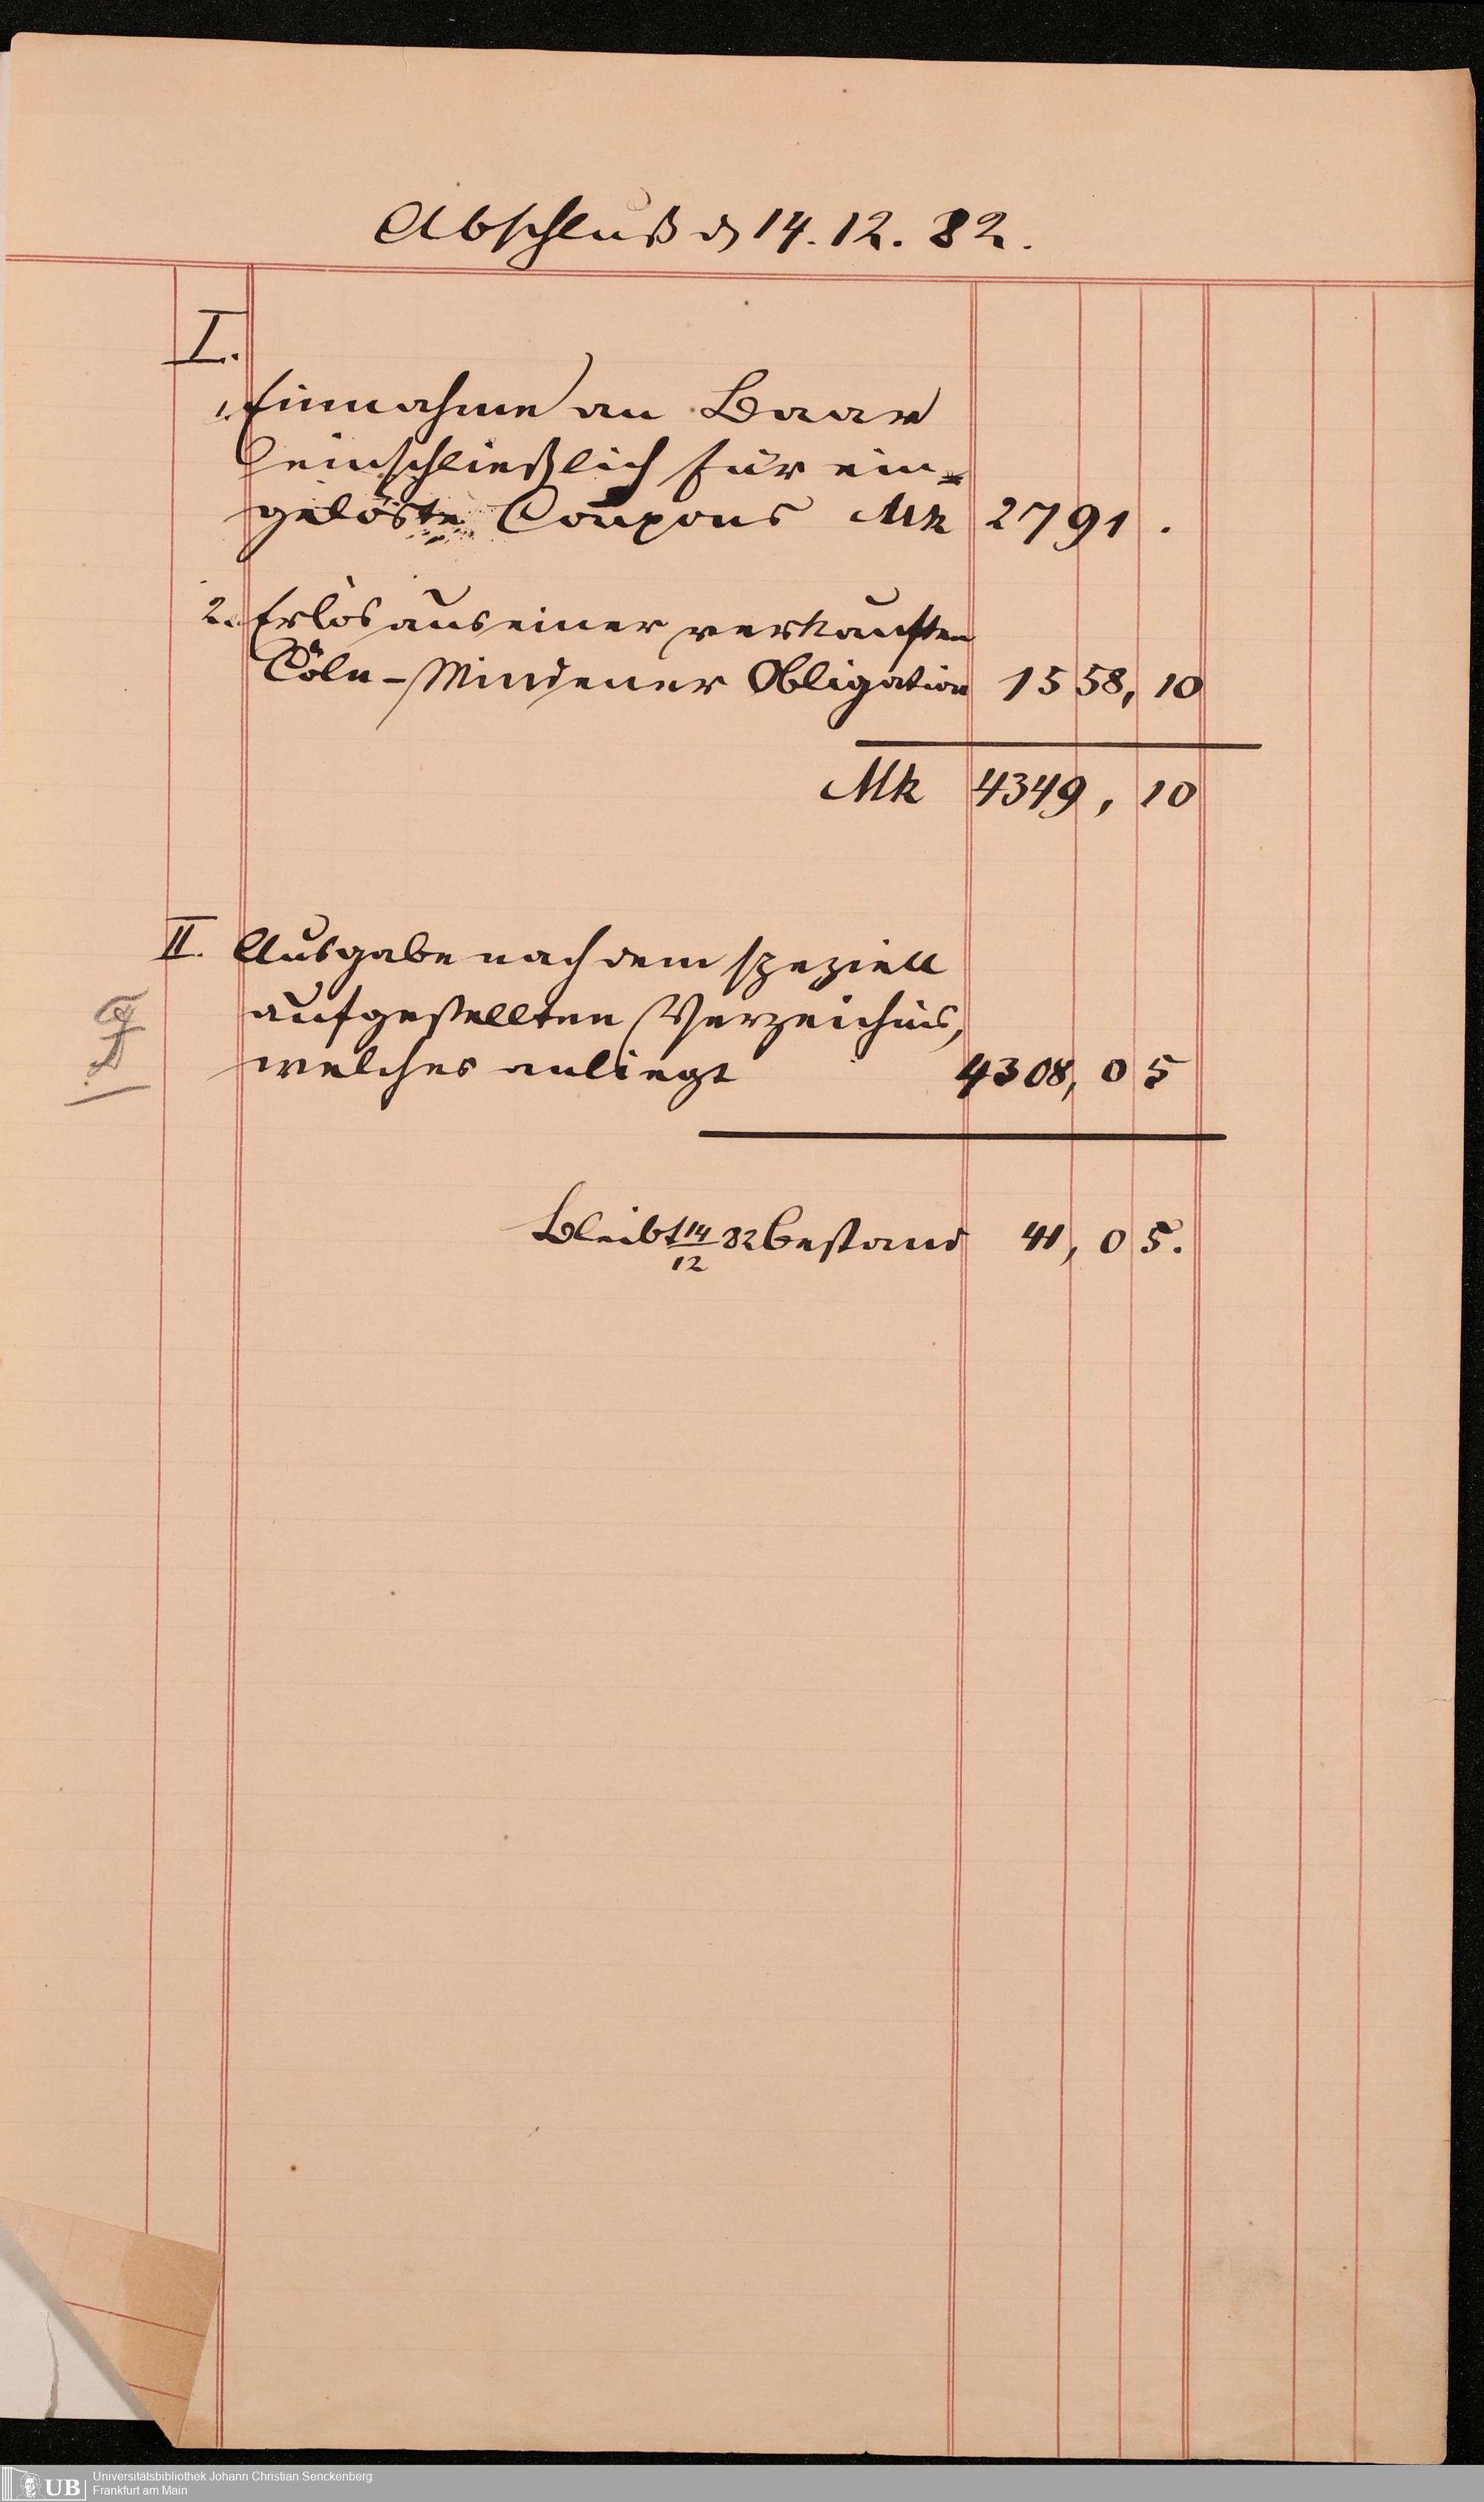 Abschluß d 14. 12. 82.
I.
1. Einnahme an Baar
einschließlich für ein=
gelöste Coupons Mk 2791.
2. Erlös aus einer verkauften
Cöln-Mindener Obligation 1558, 10
Mk 4349, 10
II. Ausgabe nach dem speziell
aufgestellten Verzeichnis,
welches anliegt 4308, 05
Bleibt 14/12 82 Bestand 41, 05.
UB
Universitätsbibliothek Johann Christian Senckenberg
Frankfurt am Main